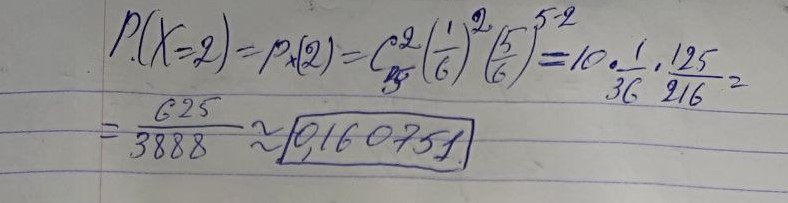 P.(X=2) = Pₓ(2) = C₅² (1/6)² (5/6)⁵⁻² = 10 · 1/36 · 125/216 =
= 625/3888 ≈ 0,160751